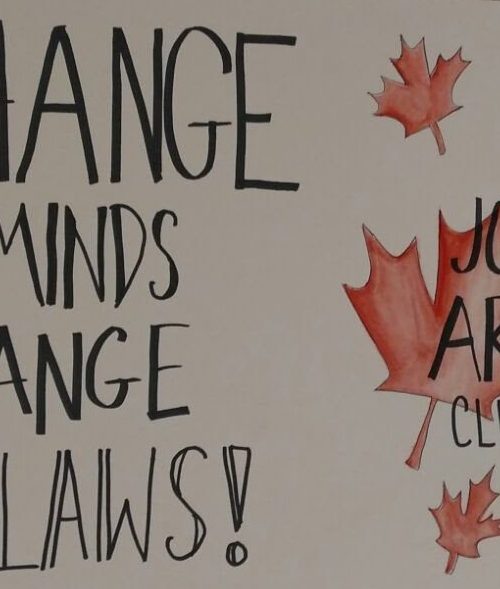 HANGE
MINDS
ANGE
LAWS!
JO
AR
CLI